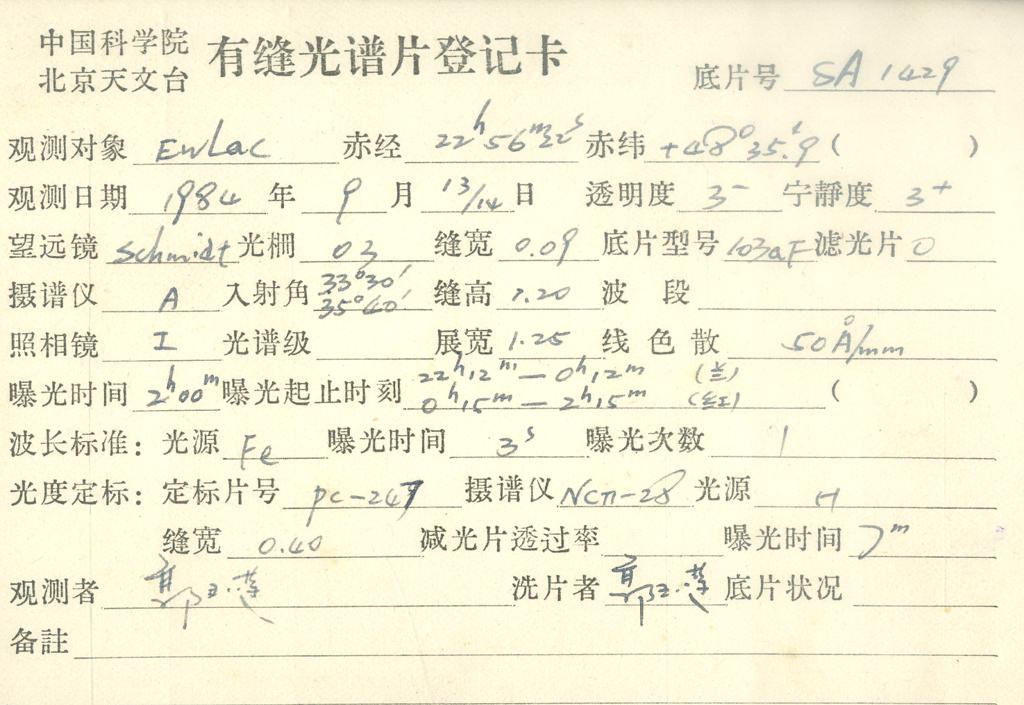 中国科学院
北京天文台
有缝光谱片登记卡
底片号 SA 1429
观测对象 EWLac 赤经 22h56m22s 赤纬 +48°35.'9 ( )
观测日期 1984 年 9 月 13/14 日 透明度 3- 宁静度 3+
望远镜 Schmidt 光栅 03 缝宽 0.09 底片型号 103aF 滤光片 0
摄谱仪 A 入射角 33°30' 35°40' 缝高 7.20 波段
照相镜 I 光谱级 展宽 1.25 线色散 50Å/mm
曝光时间 2h00m 曝光起止时刻 22h12m—0h12m (兰) ( )
0h15m—2h15m
波长标准: 光源 Fe 曝光时间 3s 曝光次数 1
光度定标: 定标片号 PC-247 摄谱仪 ИСП-28 光源 H
缝宽 0.40 减光片透过率 曝光时间 7m
观测者 郭玉莲 洗片者 郭玉莲 底片状况
备註